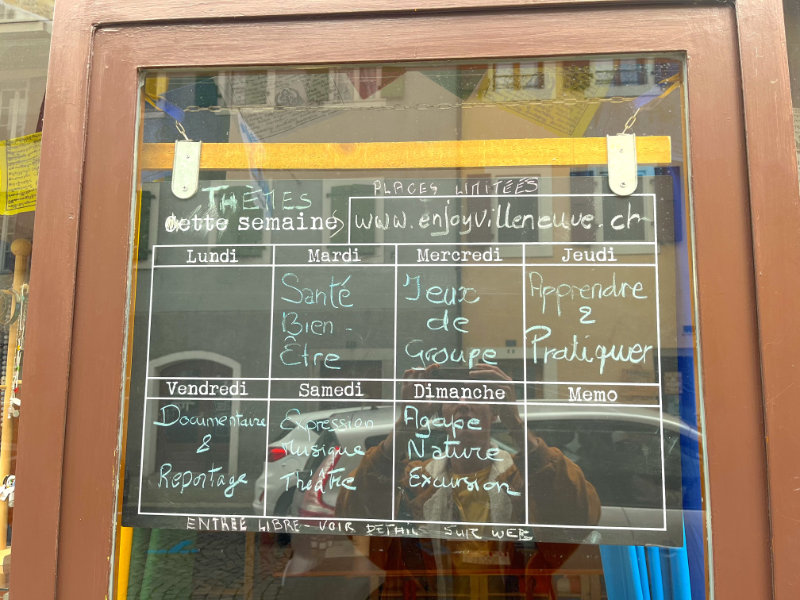 PLACES LIMITÉES
THÈMES
cette semaine
www.enjoyvilleneuve.ch
Lundi
Mardi
Mercredi
Jeudi
Santé
Bien-
Être
Jeux
de
Groupe
Apprendre
&
Pratiquer
Vendredi
Samedi
Dimanche
Memo
Documentaire
&
Reportage
Expression
Musique
Théâtre
Agape
Nature
Excursion
ENTRÉE LIBRE - VOIR DETAIL SUR WEB